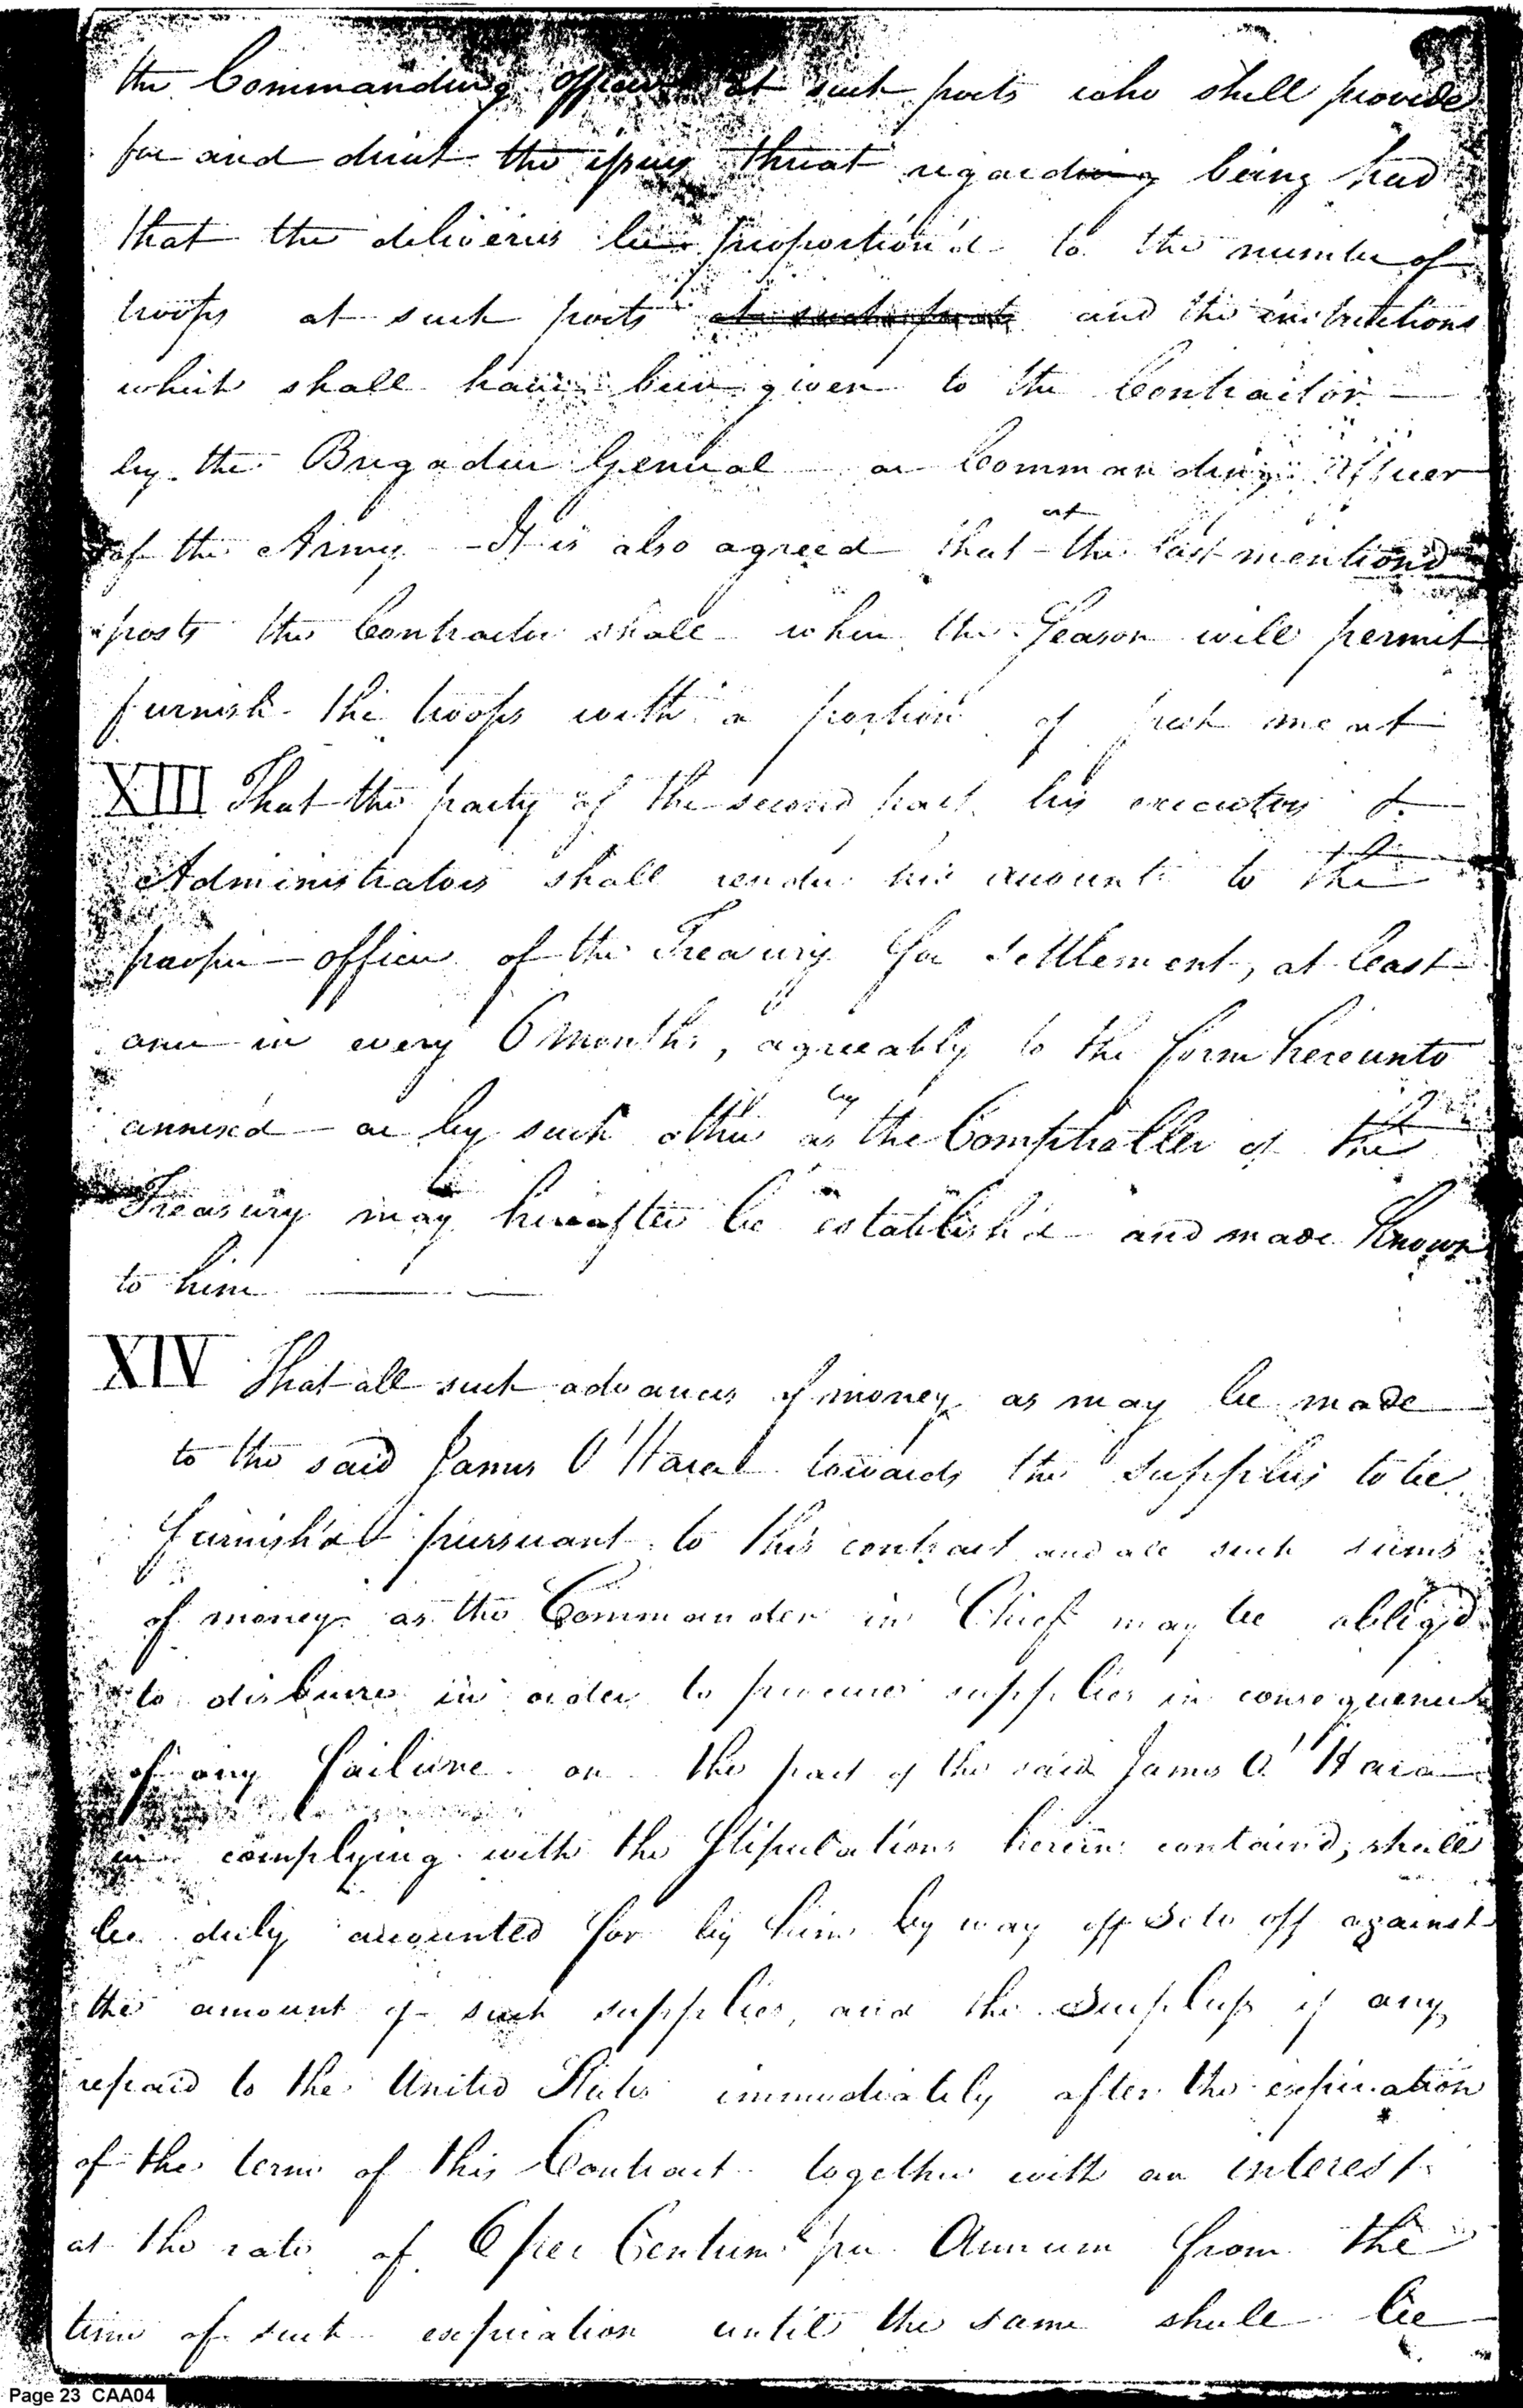 the Commanding officer at such posts who shall provide
for and direct the issues thereat regard being had
that the deliveries be proportion'd to the number of
troops at such posts at such posts and the instructions
which shall have been given to the Contractor
by the Brigadier General or Commanding Officer
of the Army - It is also agreed that at the last mention'd
posts the Contractor shall when the Season will permit
furnish the troops with a portion of fresh meat
XIII That the party of the second part his executors &
Administrators shall render his accounts to the
proper officer of the Treasury for settlement, at least
once in every 6 months, agreeably to the form hereunto
annex'd or by such other as by the Comptroller of the
Treasury may hereafter be establish'd and made known
to him
XIV That all such advances of money as may be made
to the said James O'Hara towards the supplies to be
furnish'd pursuant to this contract and all such sums
of money as the Commander in Chief may be oblig'd
to disburse in order to procure supplies in consequence
of any failure on the part of the said James O'Hara
in complying with the Stipulations herein contain'd, shall
be duly accounted for by him by way off Sett off against
the amount of such supplies, and the Surpluss if any
repaid to the United States immediately after the expiration
of the term of this Contract together with an interest
at the rate of 6 per Centum per Annum from the
time of such expiration until the same shall be
Page 23 CAA04